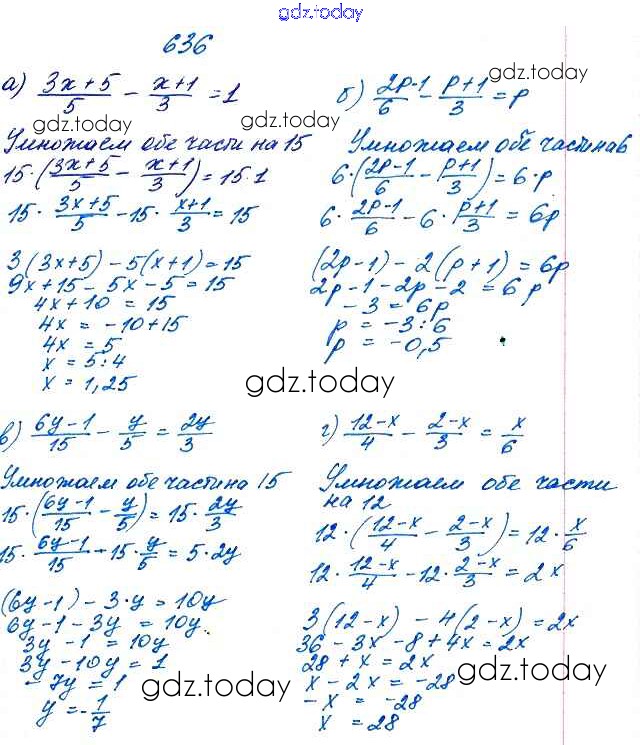 gdz.today
636
а) (3x+5)/5 - (x+1)/3 = 1
gdz.today
Умножаем обе части на 15
15·((3x+5)/5 - (x+1)/3) = 15·1
15·(3x+5)/5 - 15·(x+1)/3 = 15
3(3x+5) - 5(x+1) = 15
9x+15 - 5x - 5 = 15
4x+10 = 15
4x = -10+15
4x = 5
x = 5:4
x = 1,25
gdz.today
б) (2p-1)/6 - (p+1)/3 = p
gdz.today
Умножаем обе части на 6
6·((2p-1)/6 - (p+1)/3) = 6·p
6·(2p-1)/6 - 6·(p+1)/3 = 6p
(2p-1) - 2(p+1) = 6p
2p-1-2p-2 = 6p
-3 = 6p
p = -3:6
p = -0,5
gdz.today
gdz.today
в) (6y-1)/15 - y/5 = 2y/3
Умножаем обе части на 15
15·((6y-1)/15 - y/5) = 15·2y/3
15·(6y-1)/15 - 15·y/5 = 5·2y
(6y-1) - 3·y = 10y
6y-1-3y = 10y
3y-1 = 10y
3y-10y = 1
-7y = 1
y = -1/7
gdz.today
г) (12-x)/4 - (2-x)/3 = x/6
Умножаем обе части
на 12
12·((12-x)/4 - (2-x)/3) = 12·x/6
12·(12-x)/4 - 12·(2-x)/3 = 2x
3(12-x) - 4(2-x) = 2x
36-3x-8+4x = 2x
28+x = 2x
x-2x = -28
-x = -28
x = 28
gdz.today